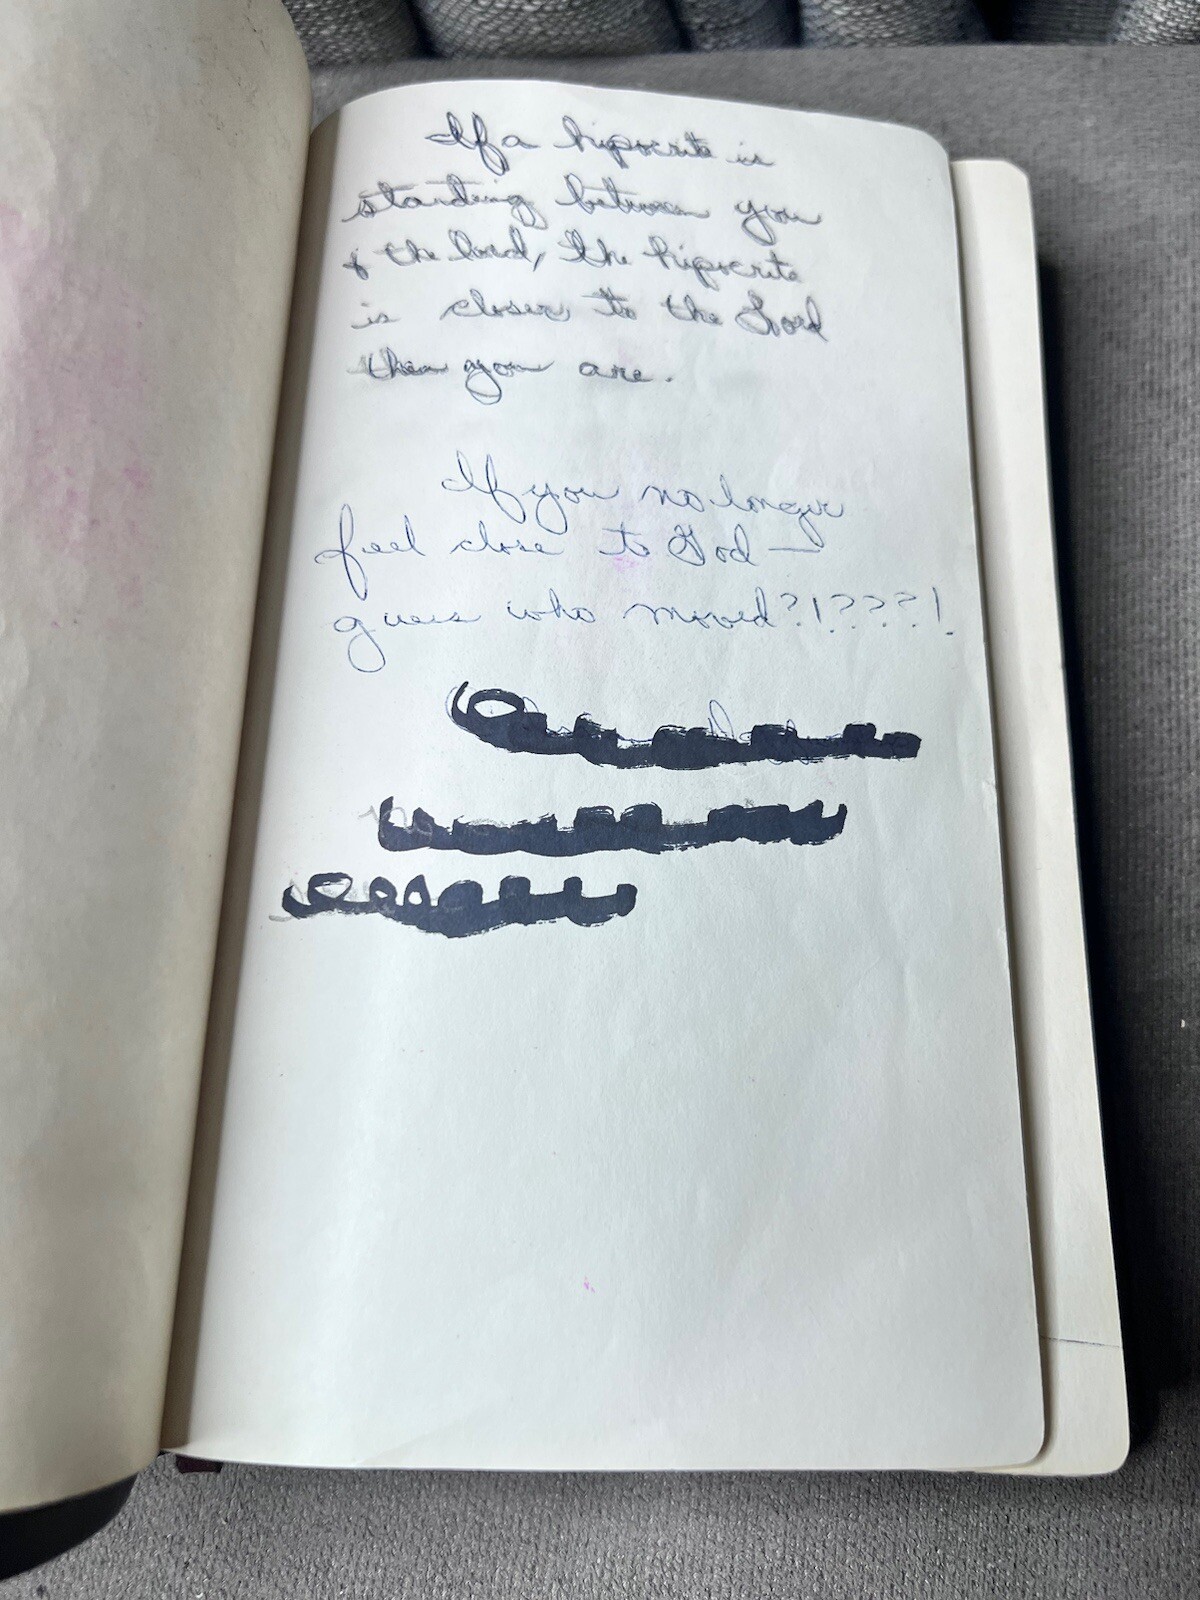 If a hipocrite is
standing between you
& the Lord, the hipocrite
is closer to the Lord
then you are.
If you no longer
feel close to God —
guess who moved?!????!